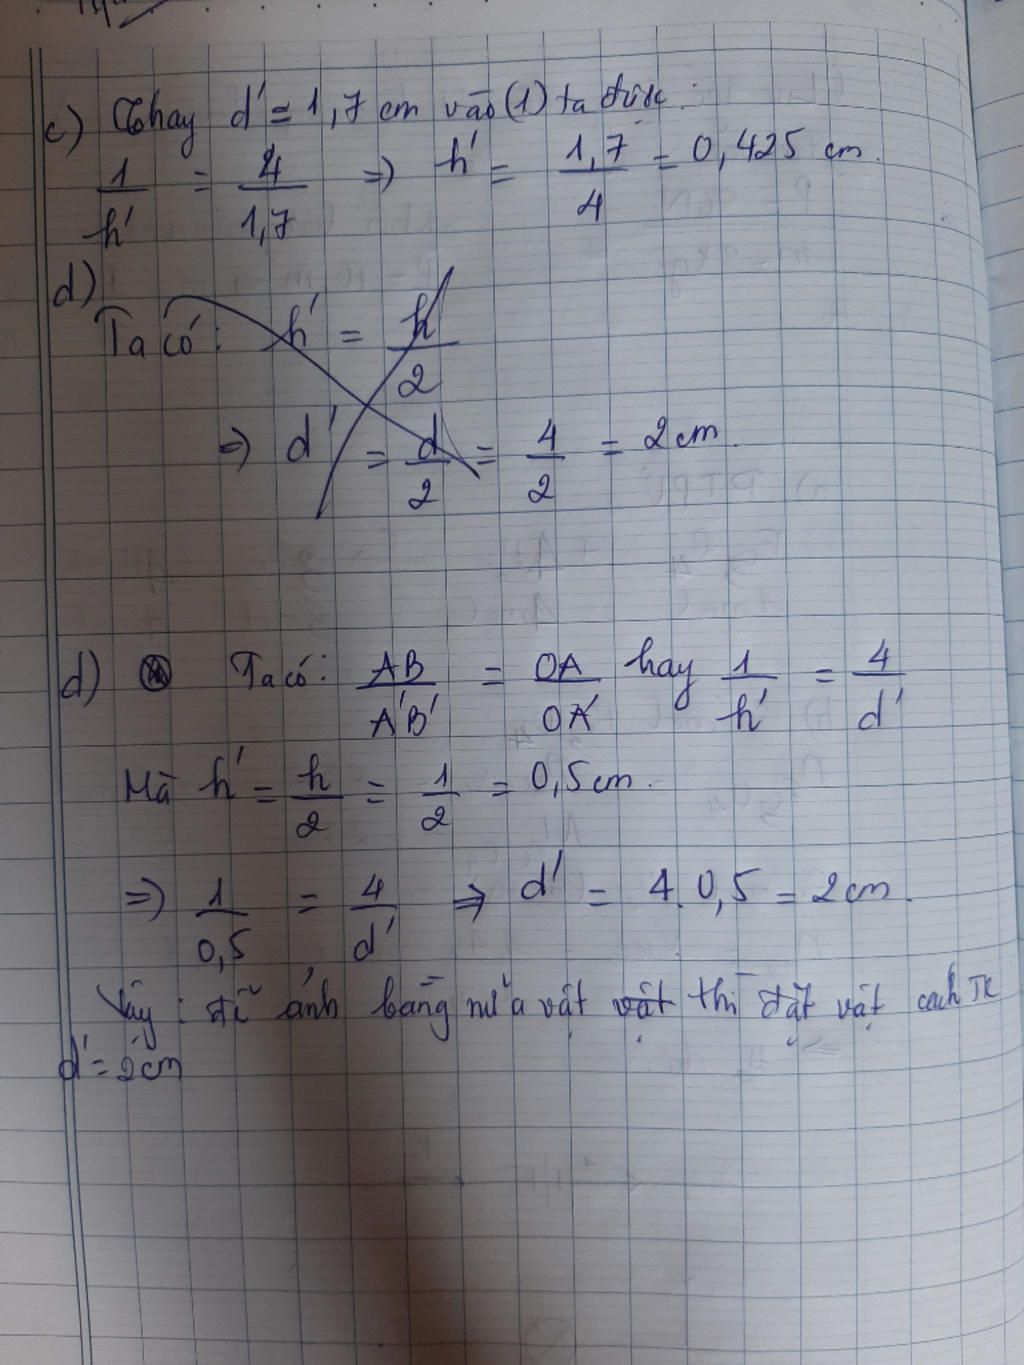 c) Thay d' = 1,7 cm vào (1) ta được:
1/h' = 4/1,7 => h' = 1,7/4 = 0,425 cm.
d)
Ta có: h' = h/2
=> d' = d/2 = 4/2 = 2 cm.
d) Ta có: AB/A'B' = OA/OA' hay 1/h' = 4/d'
Mà h' = h/2 = 1/2 = 0,5 cm.
=> 1/0,5 = 4/d' => d' = 4.0,5 = 2 cm.
Vậy: để ảnh bằng nửa vật vật thì đặt vật cách TK
d' = 2 cm